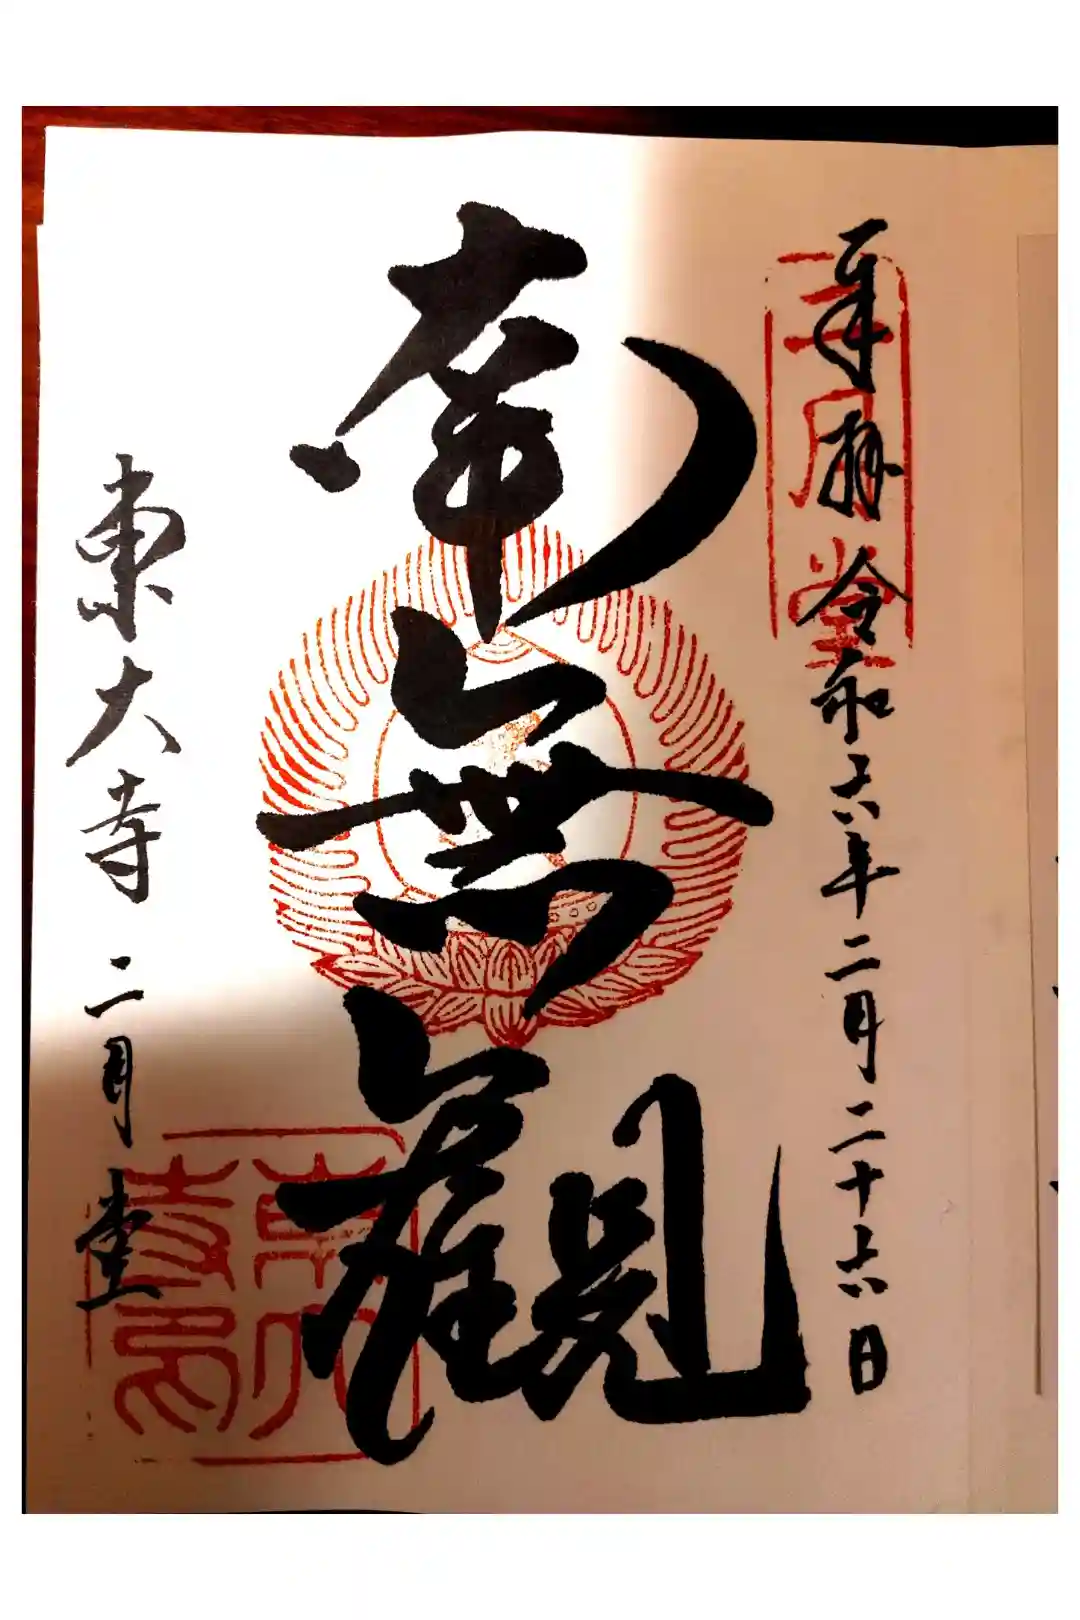 奉拝 令和六年二月二十六日
二月堂
南無観
東大寺 二月堂
東大寺印